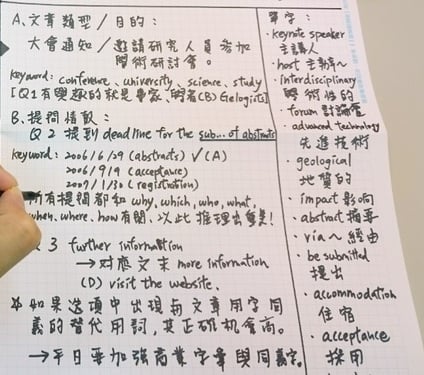 A、文章類型 / 目的：
大會通知 / 邀請研究人員參加
學術研討會。
keyword: conference、university、science、study
[Q1有興趣的就是專家、學者(B) Geologists]
B、提問情報：
Q 2 提到 deadline for the sub... of abstracts
keyword: 2006/6/29 (abstracts) ✓(A)
2006/9/19 (acceptance)
2007/1/30 (registration)
所有提問都和why, which, who, what,
when, where, how有關、以此推理出重點!
3 further information
→對應文末 more information
(D) visit the website.
☆ 如果選項中出現與文章用字同
義的替代用詞，其正確機會高。
→平日要加強商業字彙與同義字。
單字：
・keynote speaker
主講人
・host 主辦～
・interdisciplinary
學術性的
・forum 討論會
・advanced technology
先進技術
・geological
地質的
・impact 影响
・abstract 摘要
・via～ 經由
・be submitted
提出
・accommodation
住宿
・acceptance
採用